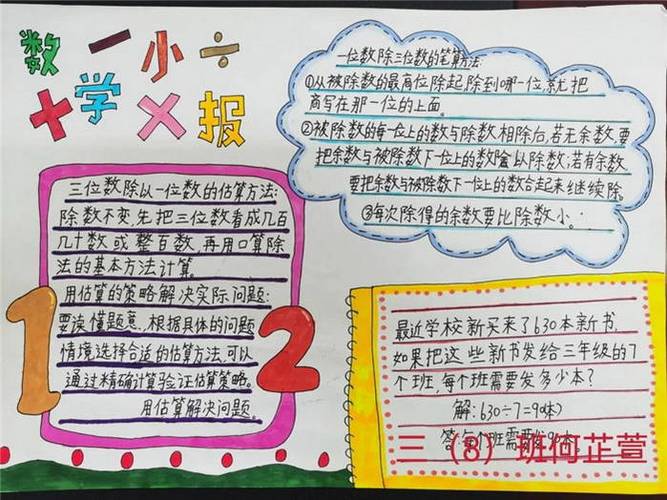 数一小÷
+学×报
一位数除三位数的笔算方法:
①从被除数的最高位除起,除到哪一位,就把
商写在那一位的上面。
②被除数的每一位上的数与除数相除后,若无余数,要
把余数与被除数下一位上的数
以除数;若有余数,
要把余数与被除数下一位上的数合起来继续除。
③每次除得的余数要比除数小。
三位数除以一位数的估算方法:
除数不变,先把三位数看成几百
几十数或整百数,再用口算除
法的基本方法计算。
用估算的策略解决实际问题:
要读懂题意,根据具体的问题
情境选择合适的估算方法,可以
通过精确计算验证估算策略。
用估算解决问题。
1
2
最近学校新买来了630本新书,
如果把这些新书发给三年级的7
个班,每个班需要发多少本?
解:630÷7=90(本)
答:每个班需要发90本。
三(8)班何芷萱